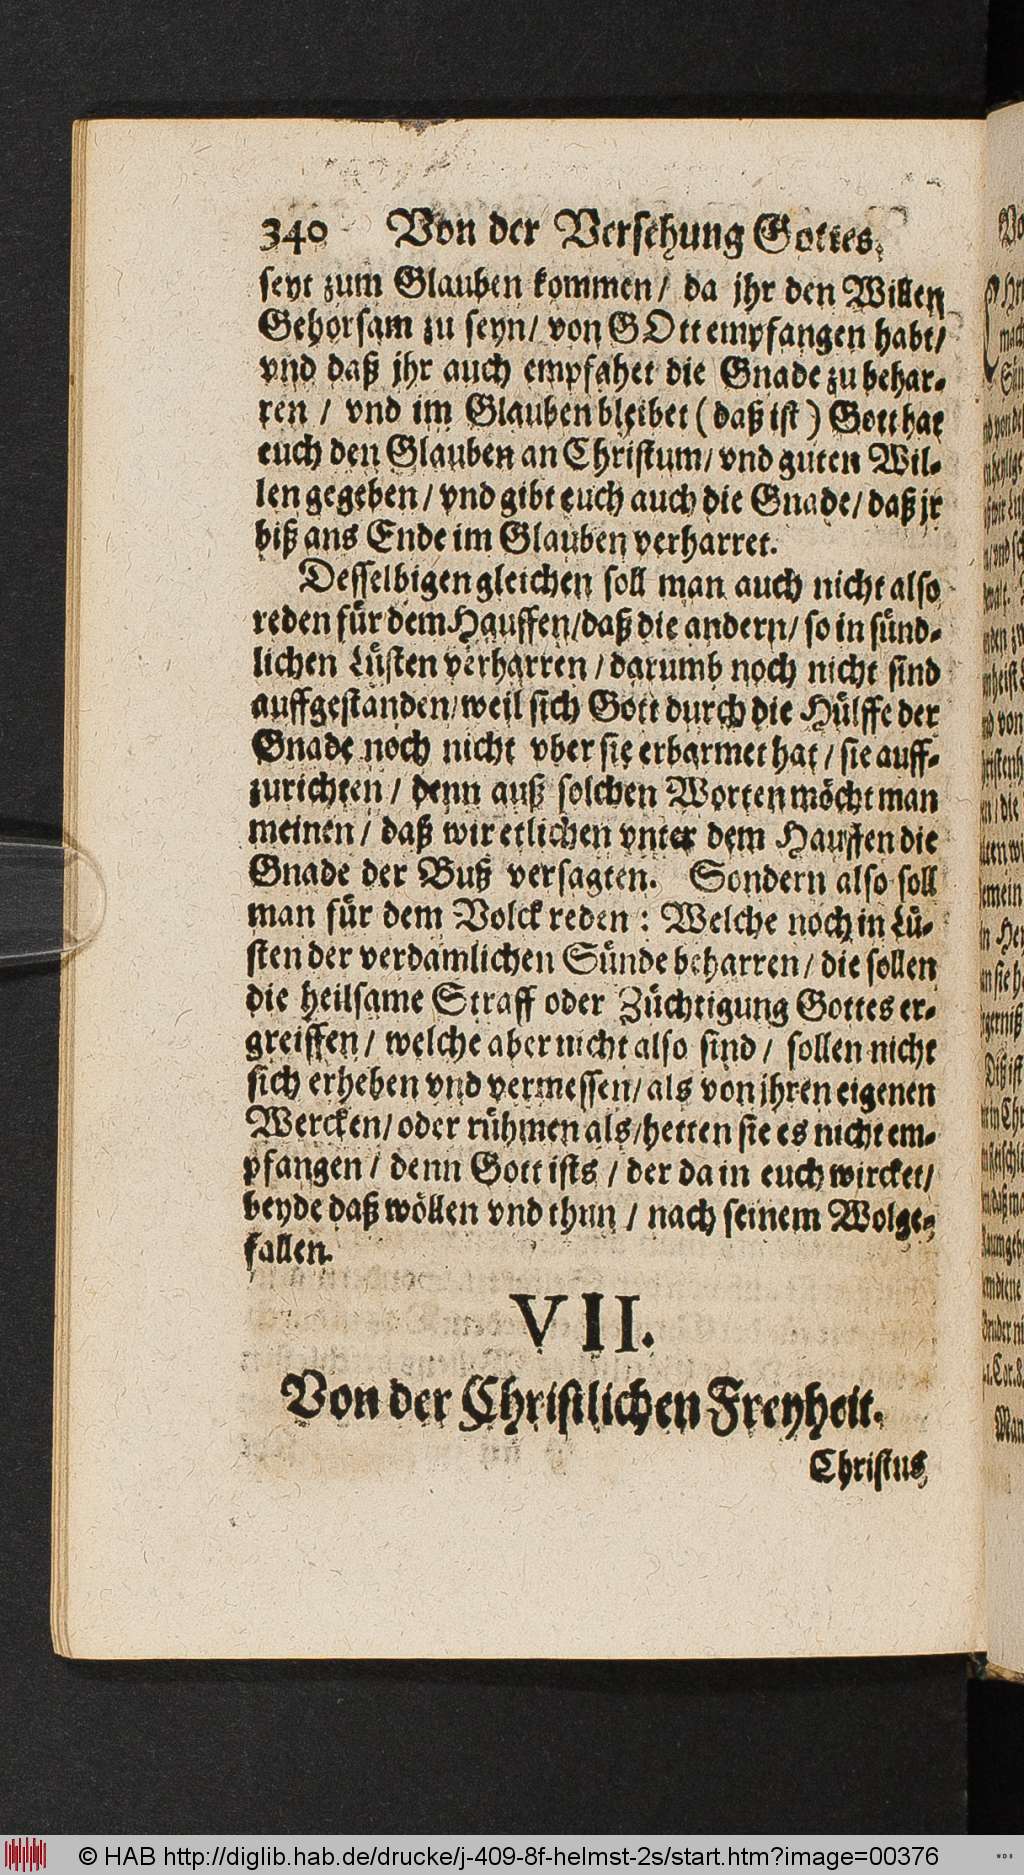 340 Von der Versehung Gottes.
seyt zum Glauben kommen / da jhr den Willen
Gehorsam zu seyn / von GOtt empfangen habt /
vnd daß jhr auch empfahet die Gnade zu behar-
ren / vnd im Glauben bleibet ( daß ist ) Gott hat
euch den Glauben an Christum / vnd guten Wil-
len gegeben / vnd gibt euch auch die Gnade / daß jr
biß ans Ende im Glauben verharret.
Desselbigen gleichen soll man auch nicht also
reden für dem Hauffen / daß die andern / so in sünd-
lichen Lüsten verharren / darumb noch nicht sind
auffgestanden / weil sich Gott durch die Hülffe der
Gnade noch nicht vber sie erbarmet hat / sie auff-
zurichten / denn auß solchen Worten möcht man
meinen / daß wir etlichen vnter dem Hauffen die
Gnade der Buß versagten. Sondern also soll
man für dem Volck reden : Welche noch in Lü-
sten der verdamlichen Sünde beharren / die sollen
die heilsame Straff oder Züchtigung Gottes er-
greiffen / welche aber nicht also sind / sollen nicht
sich erheben vnd vermessen / als von jhren eigenen
Wercken / oder rühmen als / hetten sie es nicht em-
pfangen / denn Gott ists / der da in euch wircket /
beyde daß wöllen vnd thun / nach seinem Wolge-
fallen.
VII.
Von der Christlichen Freyheit.
Christus
© HAB http://diglib.hab.de/drucke/j-409-8f-helmst-2s/start.htm?image=00376